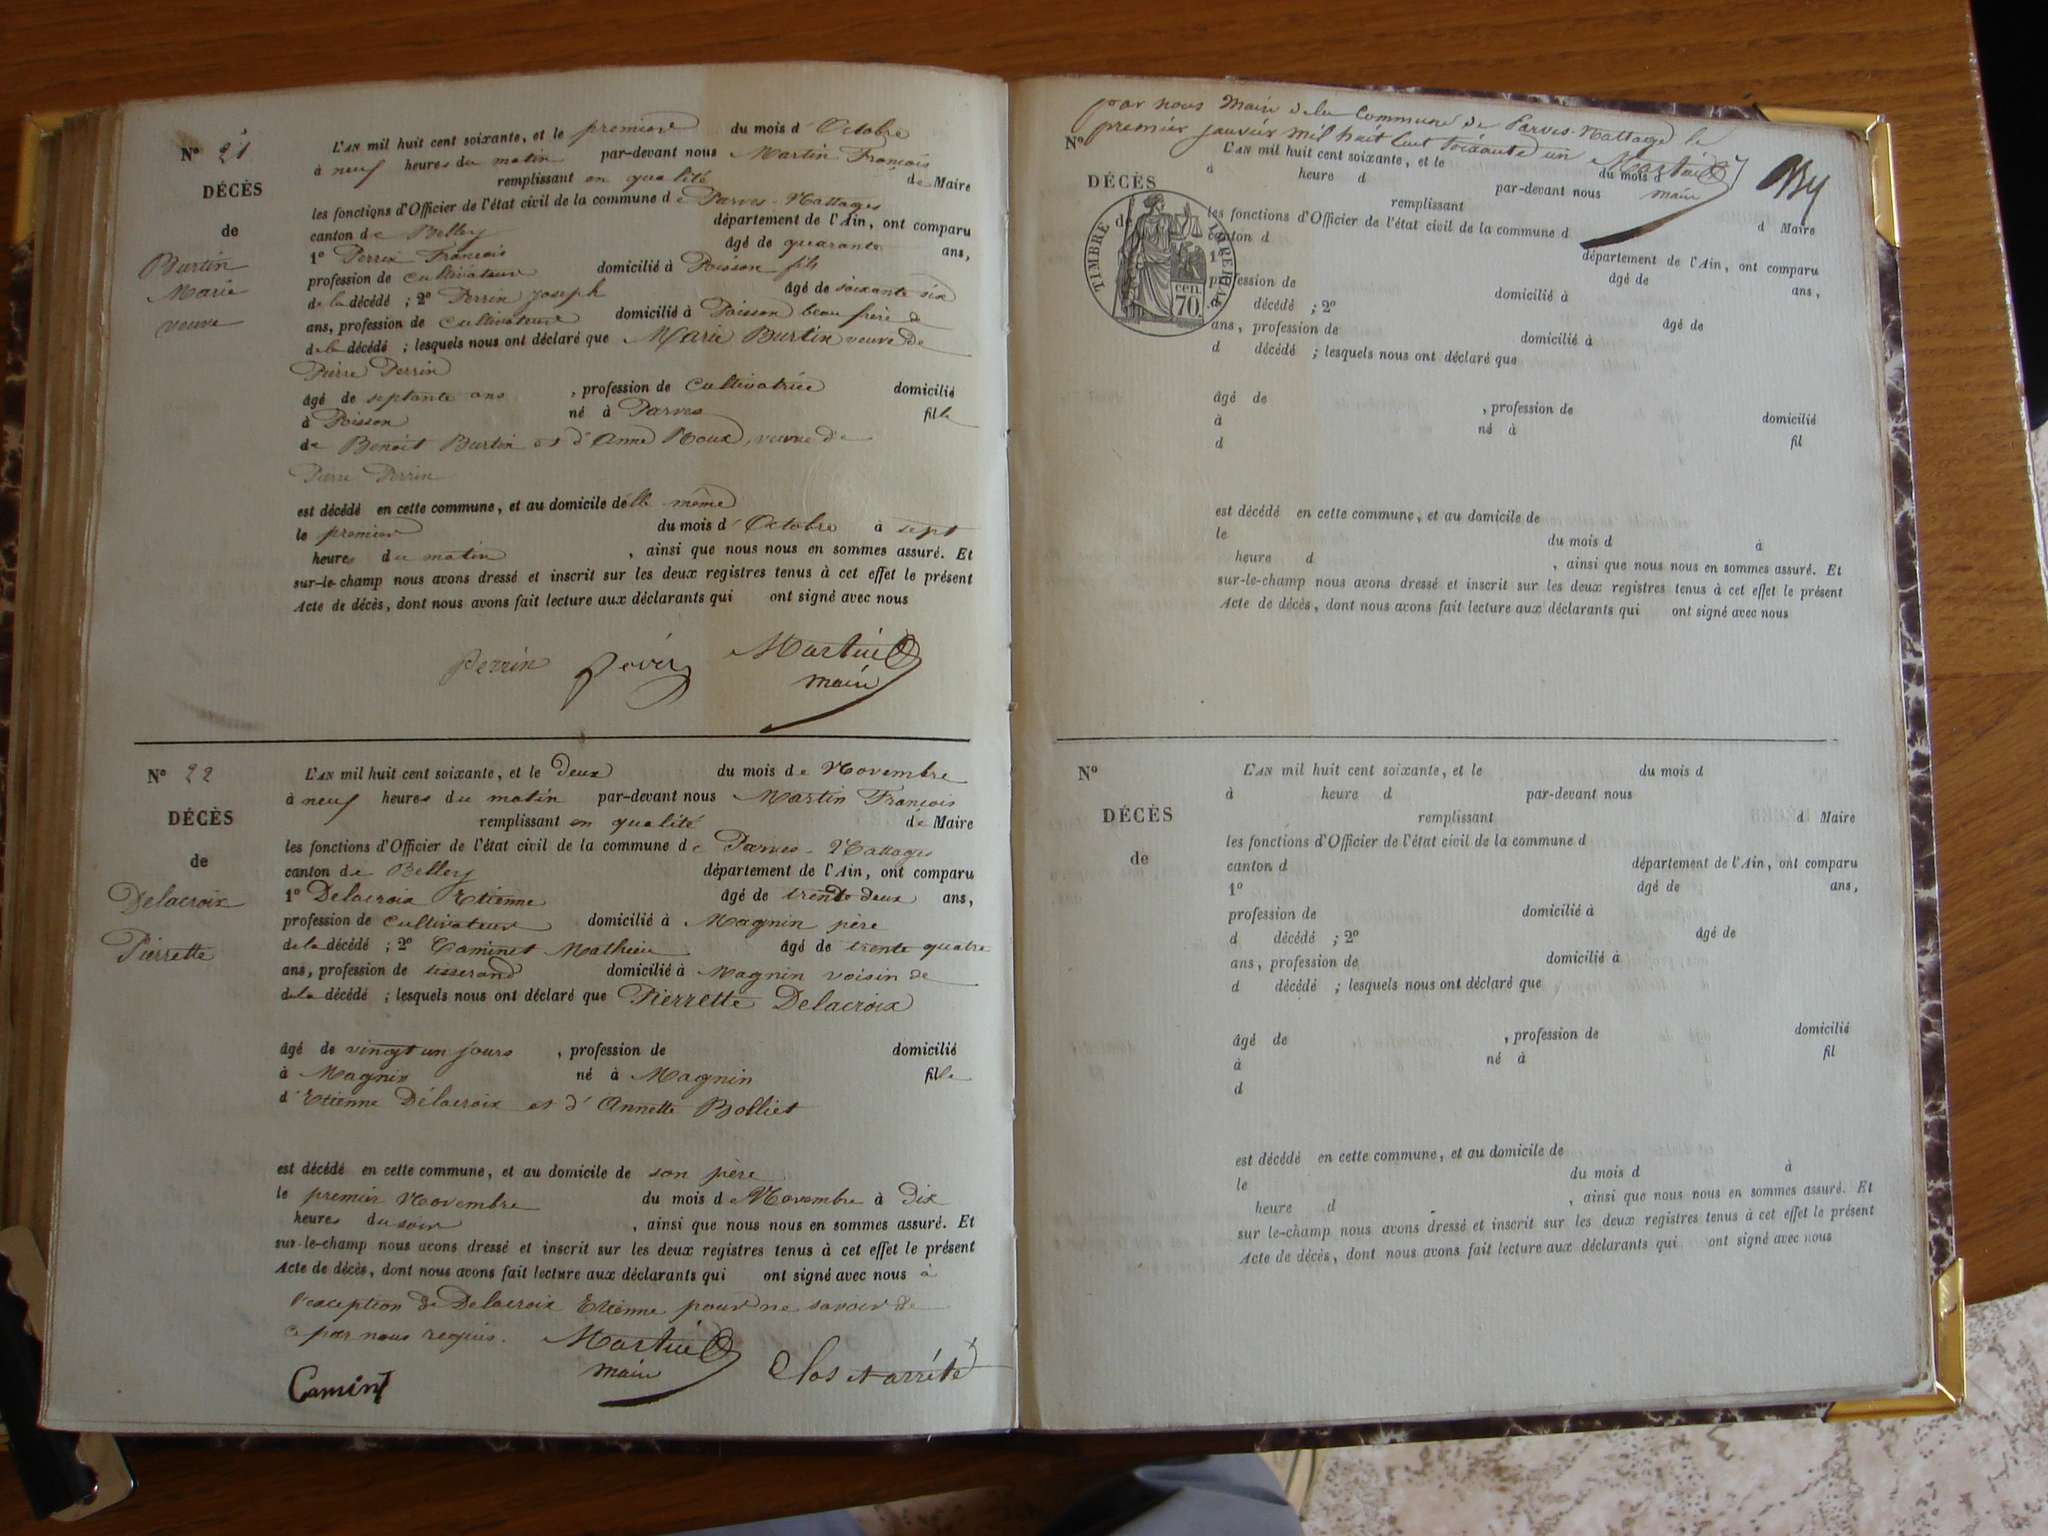 Nº 21
DÉCÈS
de
Burtin
Marie
veuve
L'AN mil huit cent soixante, et le premier du mois d' Octobre
à neuf heures du matin par-devant nous Martin François
remplissant en qualité de Maire
les fonctions d'Officier de l'état civil de la commune de Parves-Nattages
canton de Belley département de l'Ain, ont comparu
1º Perrin François âgé de quarante ans,
profession de cultivateur domicilié à Poisson fils
de la décédé ; 2º Perrin Joseph âgé de soixante six
ans, profession de cultivateur domicilié à Poisson beau frère de
de la décédé ; lesquels nous ont déclaré que Marie Burtin veuve de
Pierre Perrin
âgé de septante ans , profession de cultivatrice domicilié
à Poisson né à Parves fille
de Benoit Burtin et d'Anne Roux, veuve de
Pierre Perrin
est décédé en cette commune, et au domicile d'elle même
le premier du mois d' Octobre à sept
heures du matin , ainsi que nous nous en sommes assuré. Et
sur-le-champ nous avons dressé et inscrit sur les deux registres tenus à cet effet le présent
Acte de décès, dont nous avons fait lecture aux déclarants qui ont signé avec nous
Perrin Martin
maire
Nº 22
DÉCÈS
de
Delacroix
Pierrette
L'AN mil huit cent soixante, et le deux du mois de Novembre
à neuf heures du matin par-devant nous Martin François
remplissant en qualité de Maire
les fonctions d'Officier de l'état civil de la commune de Parves-Nattages
canton de Belley département de l'Ain, ont comparu
1º Delacroix Etienne âgé de trente deux ans,
profession de cultivateur domicilié à Magnin père
de la décédé ; 2º Caminet Mathieu âgé de trente quatre
ans, profession de tisserand domicilié à Magnin voisin de
de la décédé ; lesquels nous ont déclaré que Pierrette Delacroix
âgé de vingt un jours , profession de domicilié
à Magnin né à Magnin fille
d'Etienne Délacroix et d'Annette Bolliet
est décédé en cette commune, et au domicile de son père
le premier Novembre du mois de Novembre à dix
heures du soir , ainsi que nous nous en sommes assuré. Et
sur-le-champ nous avons dressé et inscrit sur les deux registres tenus à cet effet le présent
Acte de décès, dont nous avons fait lecture aux déclarants qui ont signé avec nous à
l'exception de Delacroix Etienne pour ne savoir de
ce par nous requis. Martin
maire
Clos et arrêté
par nous Maire de la Commune de Parves-Nattage le
premier janvier mil huit cent soixante un Martin
maire
Nº
DÉCÈS
de
TIMBRE IMPERIAL
70 cen.
L'AN mil huit cent soixante, et le du mois d
à heure d par-devant nous
remplissant d Maire
les fonctions d'Officier de l'état civil de la commune d
canton d département de l'Ain, ont comparu
1º âgé de ans,
profession de domicilié à
d décédé ; 2º âgé de
ans, profession de domicilié à
d décédé ; lesquels nous ont déclaré que
âgé de , profession de domicilié
à né à fil
d
est décédé en cette commune, et au domicile de
le du mois d à
heure d , ainsi que nous nous en sommes assuré. Et
sur-le-champ nous avons dressé et inscrit sur les deux registres tenus à cet effet le présent
Acte de décès, dont nous avons fait lecture aux déclarants qui ont signé avec nous
Nº
DÉCÈS
de
L'AN mil huit cent soixante, et le du mois d
à heure d par-devant nous
remplissant d Maire
les fonctions d'Officier de l'état civil de la commune d
canton d département de l'Ain, ont comparu
1º âgé de ans,
profession de domicilié à
d décédé ; 2º âgé de
ans, profession de domicilié à
d décédé ; lesquels nous ont déclaré que
âgé de , profession de domicilié
à né à fil
d
est décédé en cette commune, et au domicile de
le du mois d à
heure d , ainsi que nous nous en sommes assuré. Et
sur le-champ nous avons dressé et inscrit sur les deux registres tenus à cet effet le présent
Acte de décès, dont nous avons fait lecture aux déclarants qui ont signé avec nous